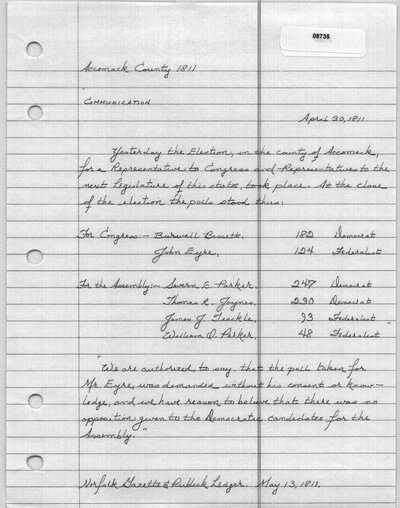 08735
Accomack County 1811
"
COMMUNICATION
April 30, 1811
Yesterday the Election, in the county of Accomack,
for a Representative to Congress and Representatives to the
next Legislature of this state, took place. At the close
of the election the polls stood thus:
For Congress:— Burwell Bassett, 182 Democrat
John Eyre, 124 Federalist
For the Assembly:— Severn E. Parker, 247 Democrat
Thomas R. Joynes, 230 Democrat
James J. Teackle, 93 Federalist
William O. Parker, 48 Federalist"
"We are authorized to say, that the poll taken for
Mr. Eyre, was demanded without his consent or know-
ledge, and we have reason to believe that there was no
opposition given to the Democratic candidates for the
Assembly."
Norfolk Gazette & Publick Ledger. May 13, 1811.